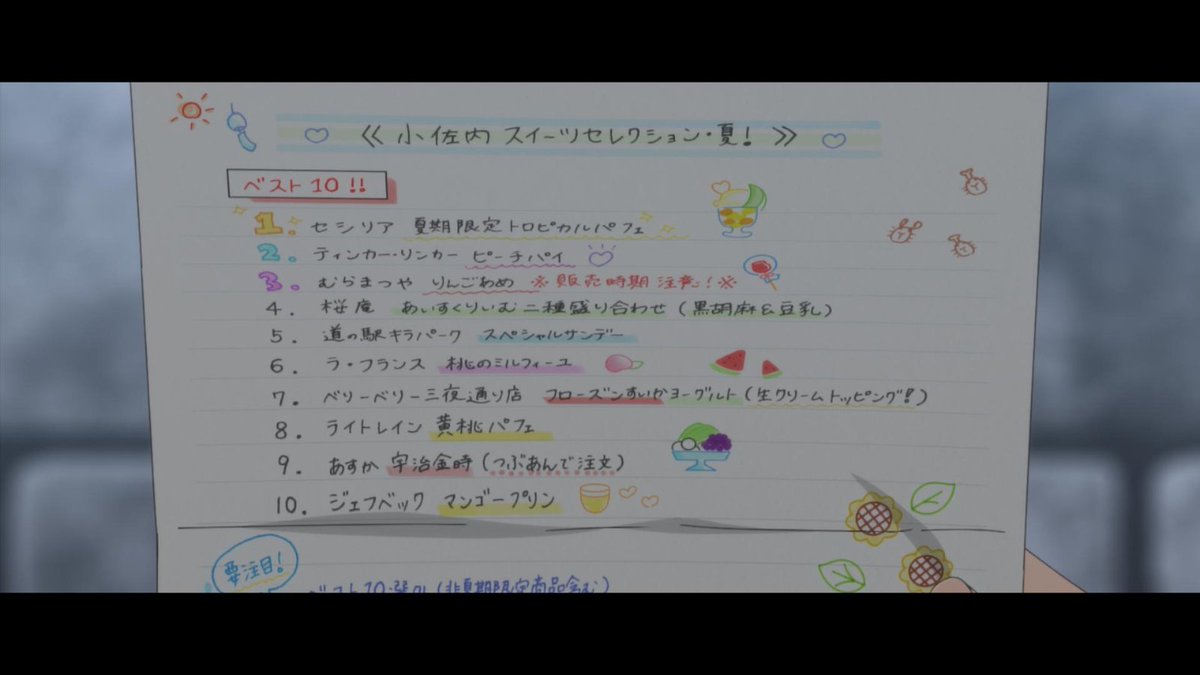 ≪ 小佐内 スイーツセレクション・夏! ≫
ベスト10!!
1. セシリア 夏期限定トロピカルパフェ
2. ティンカー・リンカー ピーチパイ
3. むらまつや りんごあめ ※販売時期注意!※
4. 桜庵 あいすくりいむ二種盛り合わせ (黒胡麻&豆乳)
5. 道の駅キラパーク スペシャルサンデー
6. ラ・フランス 桃のミルフィーユ
7. ベリーベリー三夜通り店 フローズンすいかヨーグルト (生クリームトッピング!)
8. ライトレイン 黄桃パフェ
9. あすか 宇治金時 (つぶあんで注文)
10. ジェフベック マンゴープリン
要注目!
ベスト10選外 (非夏期限定商品含む)